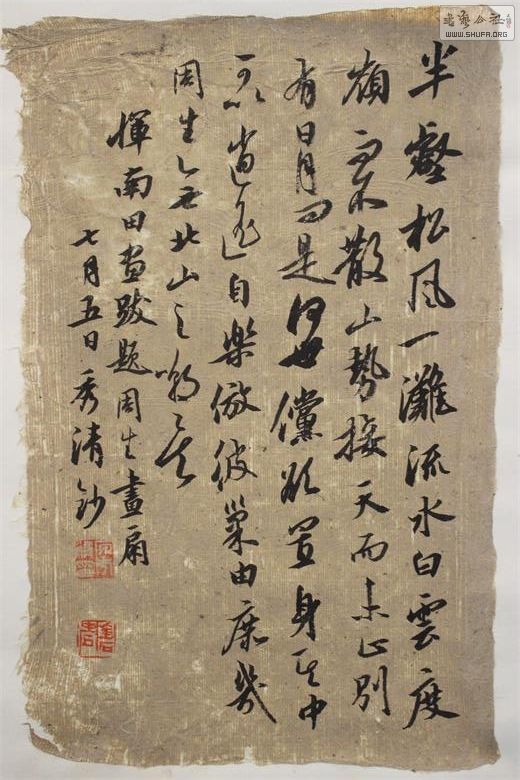 書藝公社
WWW.SHUFA.ORG
半壑松風一灘流水白雲度
嶺而不散山勢接天而未止別
有日月問是何世儻欲置身其中
可以逍遙自樂倣彼巢由庶幾
周生無北山之嘲矣
惲南田畫跋題周生畫扇
七月五日秀清鈔